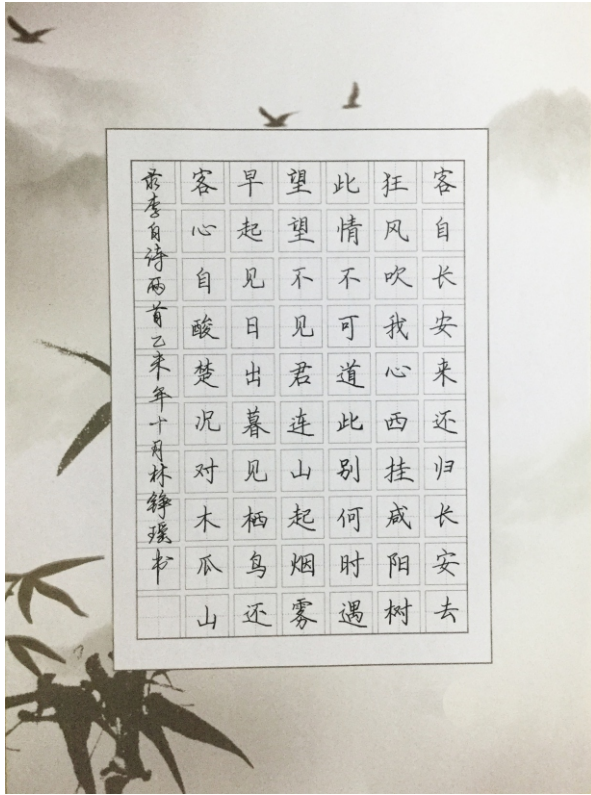 客自长安来还归长安去
狂风吹我心西挂咸阳树
此情不可道此别何时遇
望望不见君连山起烟雾
早起见日出暮见栖鸟还
客心自酸楚况对木瓜山
录李白诗两首乙未年十月林铮瑶书